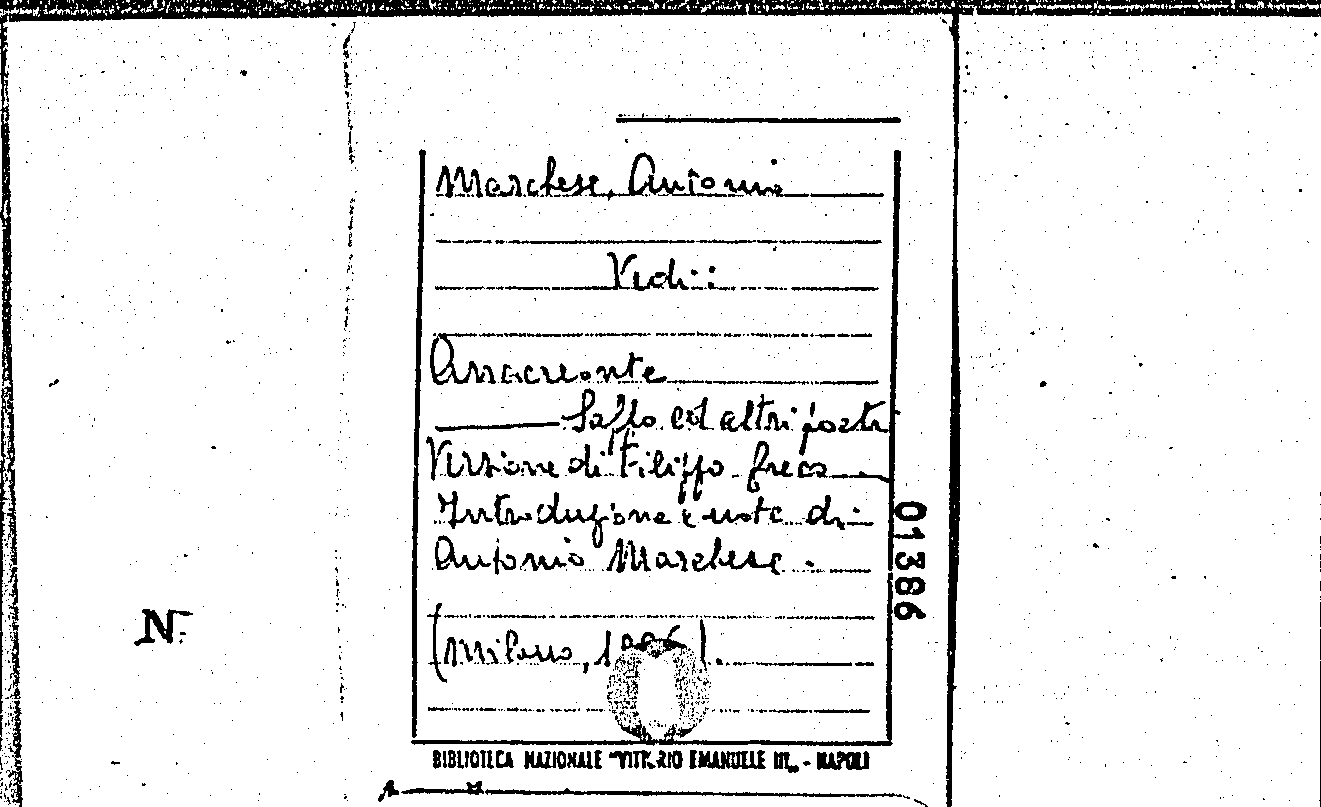 Marchese, Antonio
Vedi:
Anacreonte
Saffo ed altri poeti
Versione di Filippo Greco
Introduzione e note di
Antonio Marchese.
(Milano,
01386
N.
BIBLIOTECA NAZIONALE "VITTORIO EMANUELE III„ - NAPOLI